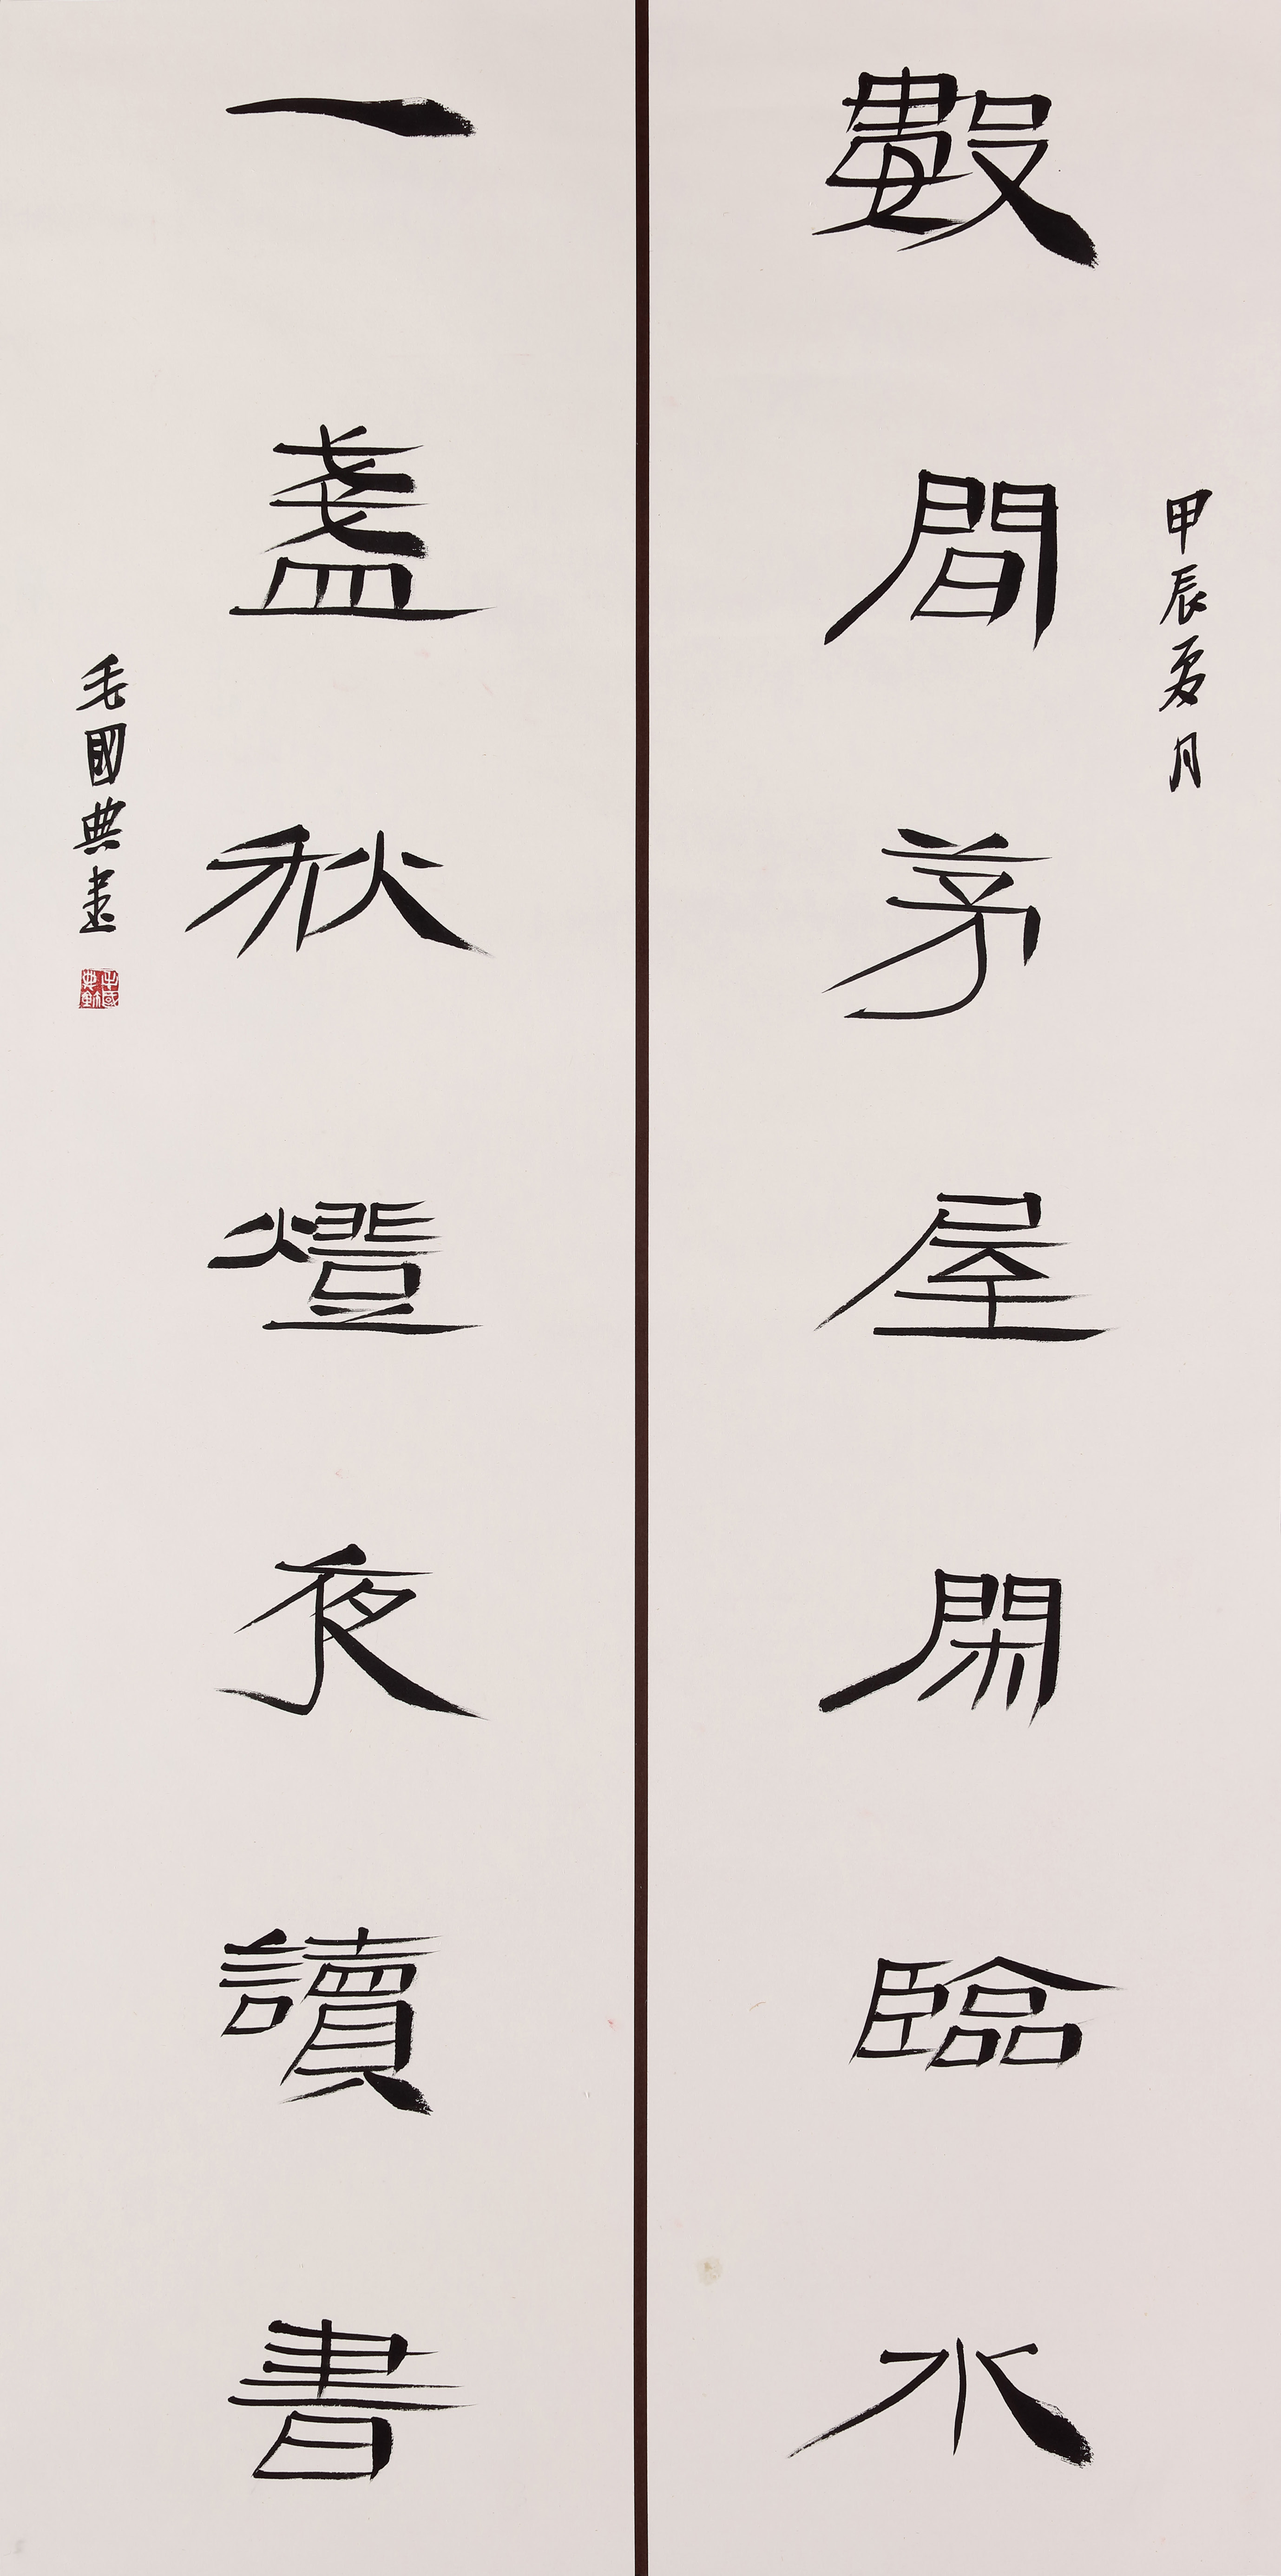 甲辰夏月
數間茅屋閑臨水
一盞秋燈夜讀書
毛國典書